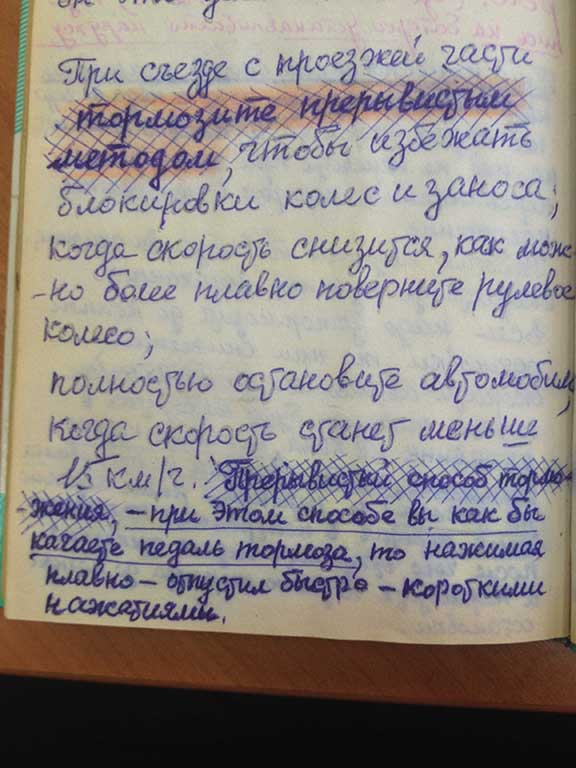 При съезде с проезжей части
тормозите прерывистым
методом, чтобы избежать
блокировки колес и заноса;
когда скорость снизится, как мож-
-но более плавно поверните рулевое
колесо;
полностью остановите автомобиль,
когда скорость станет меньше
15 км/г. Прерывистый способ тормо-
-жения, – при этом способе вы как бы
качаете педаль тормоза, то нажимая
плавно – отпустил быстро – короткими
нажатиями.